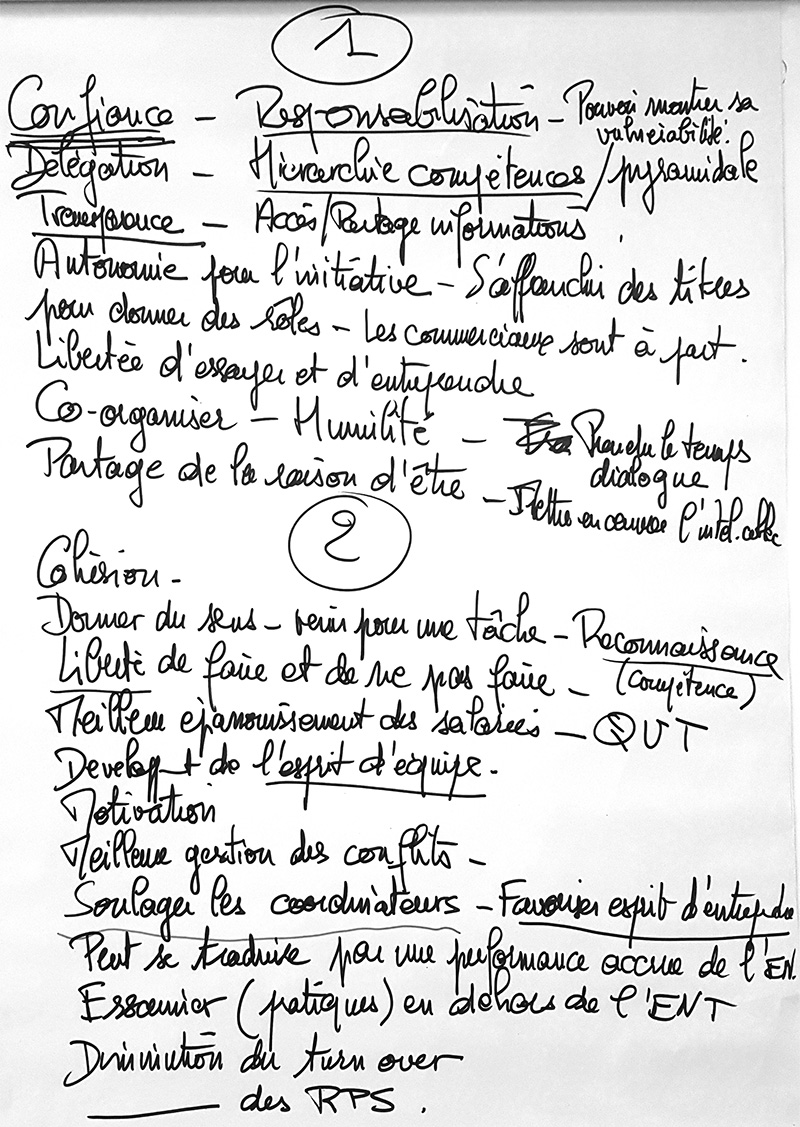 1
Confiance - Responsabilisation - Pouvoir montrer sa
vulnérabilité.
Délégation - Hiérarchie compétences / pyramidale
Transparance - Accès/Partage informations.
Autonomie pour l'initiative - S'affranchi des titres
pour donner des rôles - Les commerciaux sont à part.
Libertée d'essayer et d'entreprendre
Co-organiser - Humilité - Prendre le temps
dialogue
Partage de la raison d'être - Mettre en oeuvre l'intel. collec
2
Cohésion -
Donner du sens - venir pour une tâche - Reconnaissance
(compétence)
Liberté de faire et de ne pas faire -
Meilleur épanouissement des salariés - QVT
Developpt de l'esprit d'équipe.
Motivation
Meilleure gestion des conflits -
Soulager les coordinateurs - Favoriser esprit d'entreprdre
Peut se traduire par une performance accrue de l'EN.
Essaimer (pratiques) en dehors de l'ENT
Diminution du turn over
——— des RPS.